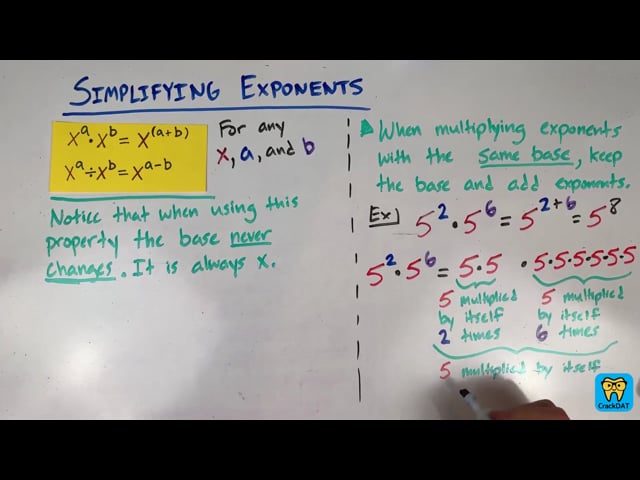 SIMPLIFYING EXPONENTS
xᵃ·xᵇ = x⁽ᵃ⁺ᵇ⁾
xᵃ÷xᵇ = xᵃ⁻ᵇ
For any
x, a, and b
Notice that when using this
property the base never
changes. It is always x.
When multiplying exponents
with the same base, keep
the base and add exponents.
Ex) 5²·5⁶ = 5²⁺⁶ = 5⁸
5²·5⁶ = 5·5 · 5·5·5·5·5·5
5 multiplied by itself 2 times
5 multiplied by itself 6 times
5 multiplied by itself
CrackDAT